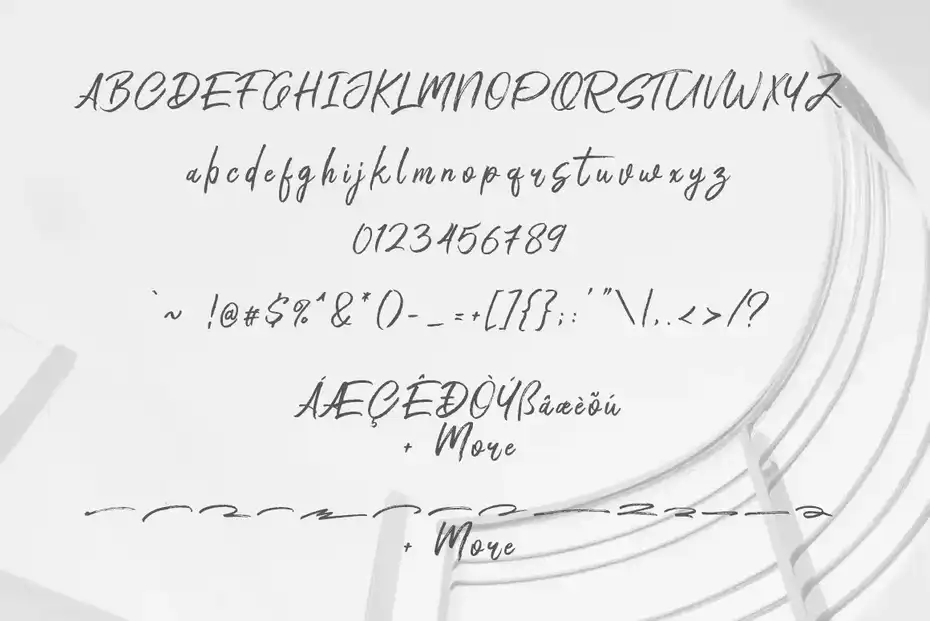 ABCDEFGHIJKLMNOPQRSTUVWXYZ
abcdefghijklmnopqrstuvwxyz
0123456789
`~ !@#$%^&*()-_=+[]{};:'"\|,.<>/?
ÁÆÇÊÐÒÝßâæèõú
+ More
+ More